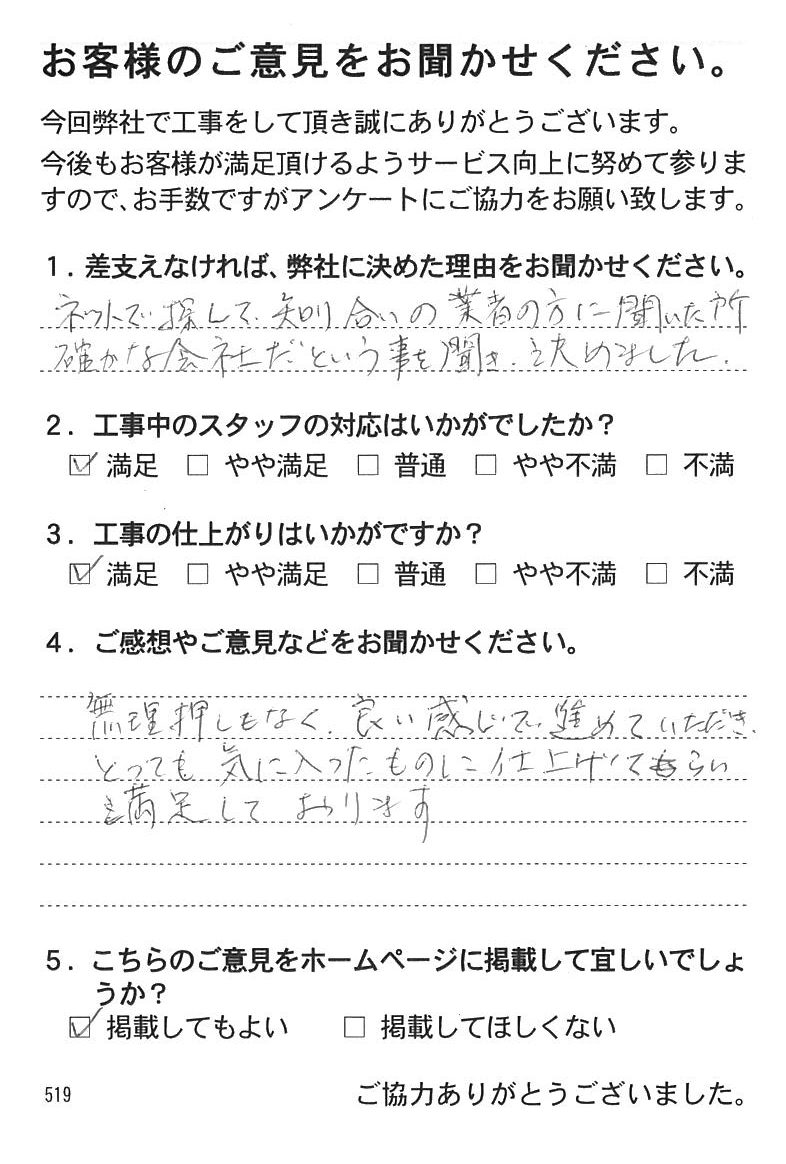 お客様のご意見をお聞かせください。
今回弊社で工事をして頂き誠にありがとうございます。
今後もお客様が満足頂けるようサービス向上に努めて参りま
すので、お手数ですがアンケートにご協力をお願い致します。
1. 差支えなければ、弊社に決めた理由をお聞かせください。
ネットで探して、知り合いの業者の方に聞いた所
確かな会社だという事を聞き、決めました。
2. 工事中のスタッフの対応はいかがでしたか？
☑ 満足 □ やや満足 □ 普通 □ やや不満 □ 不満
3. 工事の仕上がりはいかがですか？
☑ 満足 □ やや満足 □ 普通 □ やや不満 □ 不満
4. ご感想やご意見などをお聞かせください。
無理押しもなく、良い感じで進めていただき、
とっても気に入ったものに仕上げてもらい
満足しております
5. こちらのご意見をホームページに掲載して宜しいでしょ
うか？
☑ 掲載してもよい □ 掲載してほしくない
519 ご協力ありがとうございました。